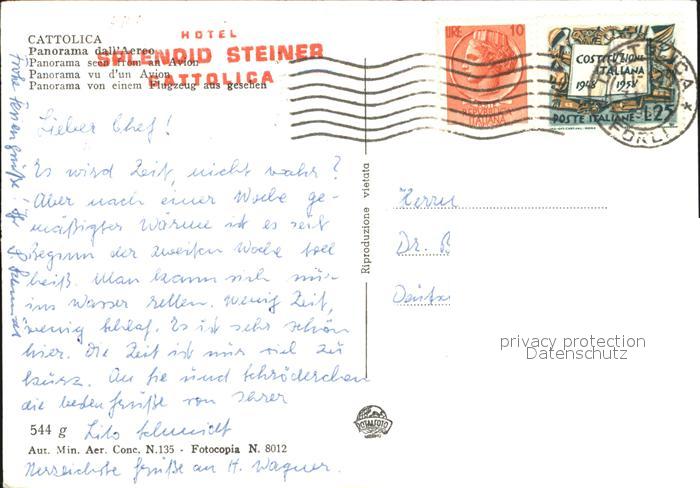 HOTEL
SPLENDID STEINER
CATTOLICA
CATTOLICA
Panorama dall'Aereo
Panorama seen from an Avion
Panorama vu d'un Avion
Panorama von einem Flugzeug aus gesehen
LIRE 10
REPVBBLICA
ITALIANA
COSTITUZIONE
ITALIANA
1948 1958
POSTE ITALIANE L.25
CATTOLICA * FORLI
Lieber Chef!
Es wird Zeit, nicht wahr?
Aber nach einer Woche ge-
mäßigter Wärme ist es seit
Beginn der zweiten Woche toll
heiß. Man kann sich nur
ins Wasser retten. Wenig Zeit,
wenig Schlaf. Es ist sehr schön
hier. Die Zeit ist nur viel zu
kurz. An Sie und Schröderchen
die besten Grüße von Ihrer
Lilo Schmidt
Herzlichste Grüße an H. Wagner.
Frohe Feriengrüße! Ihr
Schmidt
Riproduzione vietata
Herrn
Dr. B
Deuts
privacy protection
Datenschutz
544 g
Aut. Min. Aer. Conc. N.135 - Fotocopia N. 8012